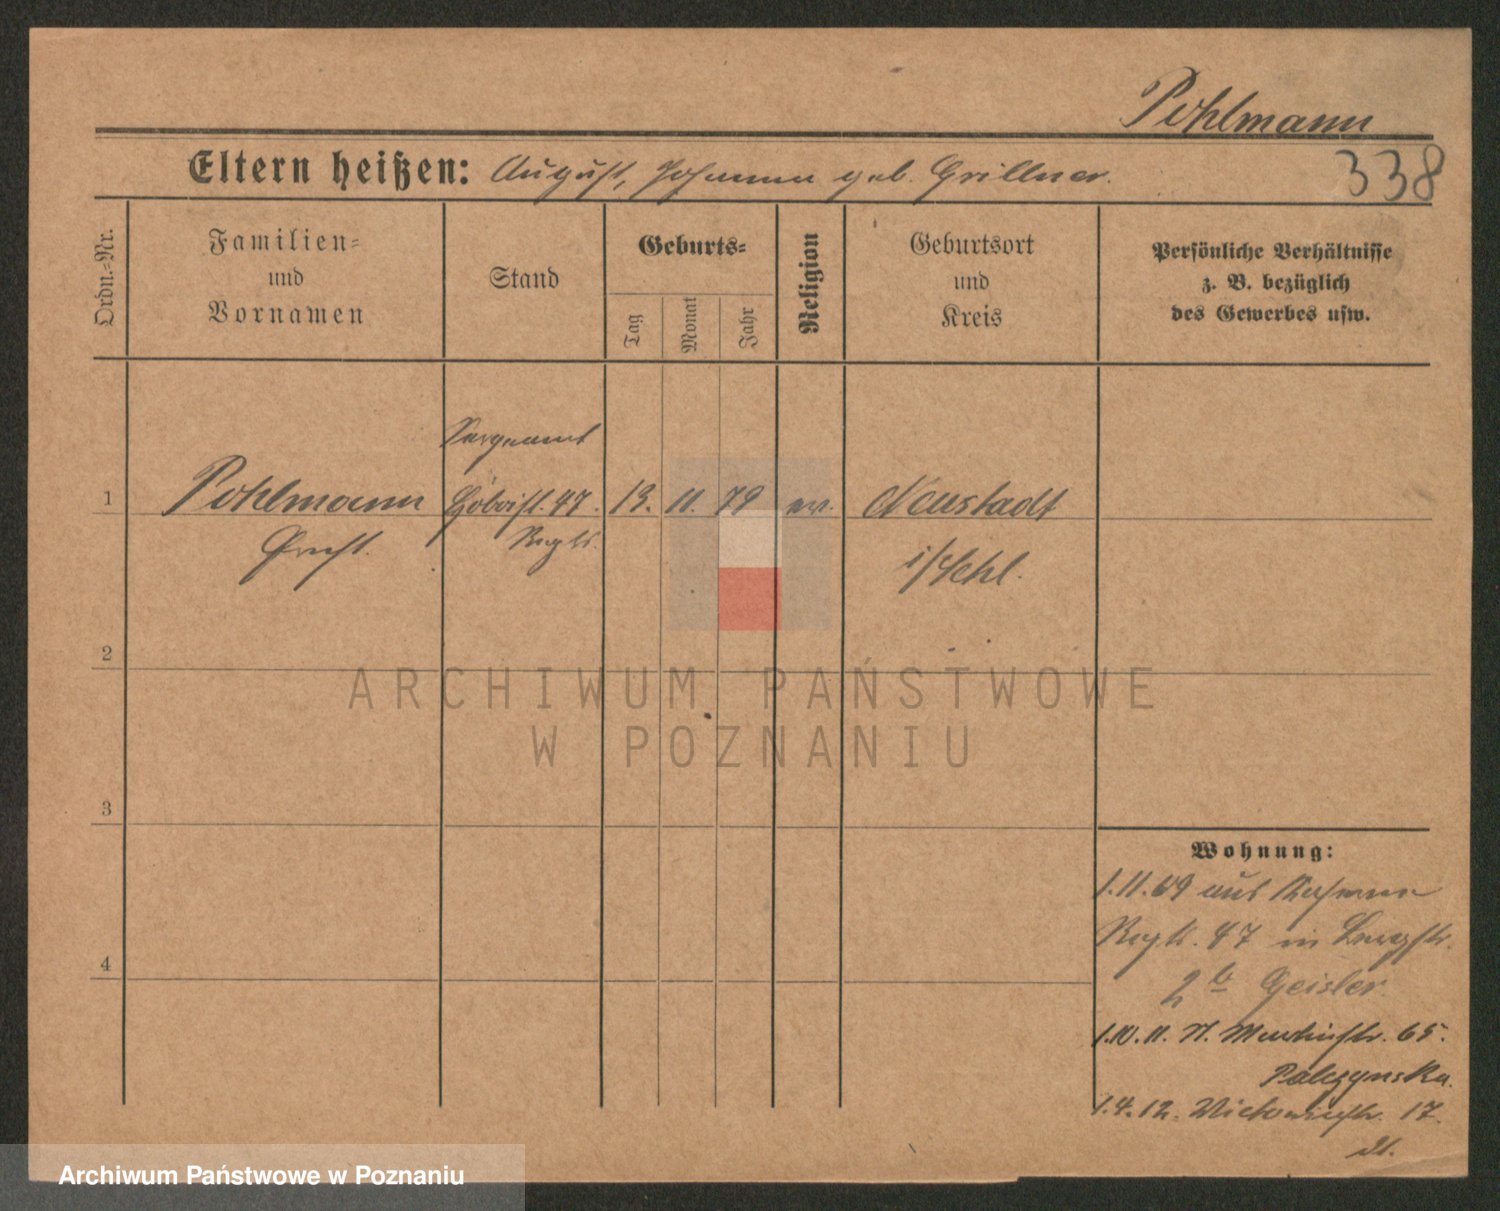 Pohlmann
338
Eltern heißen: August, Johanna geb. Grillner.
Ordn.=Nr.
Familien=
und
Vornamen
Stand
Geburts=
Tag
Monat
Jahr
Religion
Geburtsort
und
Kreis
Persönliche Verhältnisse
z. B. bezüglich
des Gewerbes usw.
Sergeant
1 Pohlmann Hoboist. 47. 13. 11. 79 ev. Neustadt
Ernst. Regts. i/Schl.
2
ARCHIWUM PAŃSTWOWE
W POZNANIU
3
Wohnung:
1.11.09 aus Kaserne
Regts. 47 in Bergstr.
4
2 b Geisler
1.10.11. N. Martinstr. 65.
Palczynska.
1.4.12. Victoriastr. 17.
Archiwum Państwowe w Poznaniu